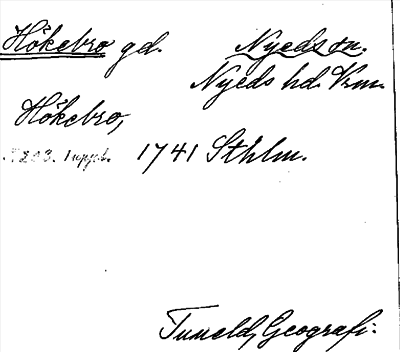 Hökebro gd. Nyeds sn.
Nyeds hd. Vrm.
Hökebro,
1741 Sthlm.
Tuneld, Geografi.